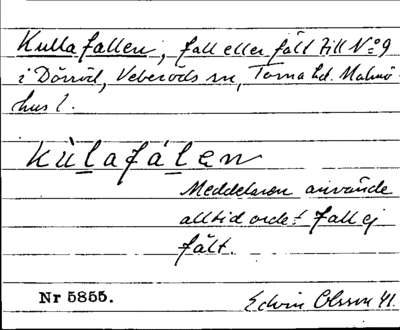 Kullafallen, fall eller fält till No 9
i Dörröd, Veberöds sn, Torna hd. Malmö-
hus l.
kùlafálen
Meddelaren använde
alltid ordet fall ej
fält.
Nr 5855.
Edvin Olsson 41.